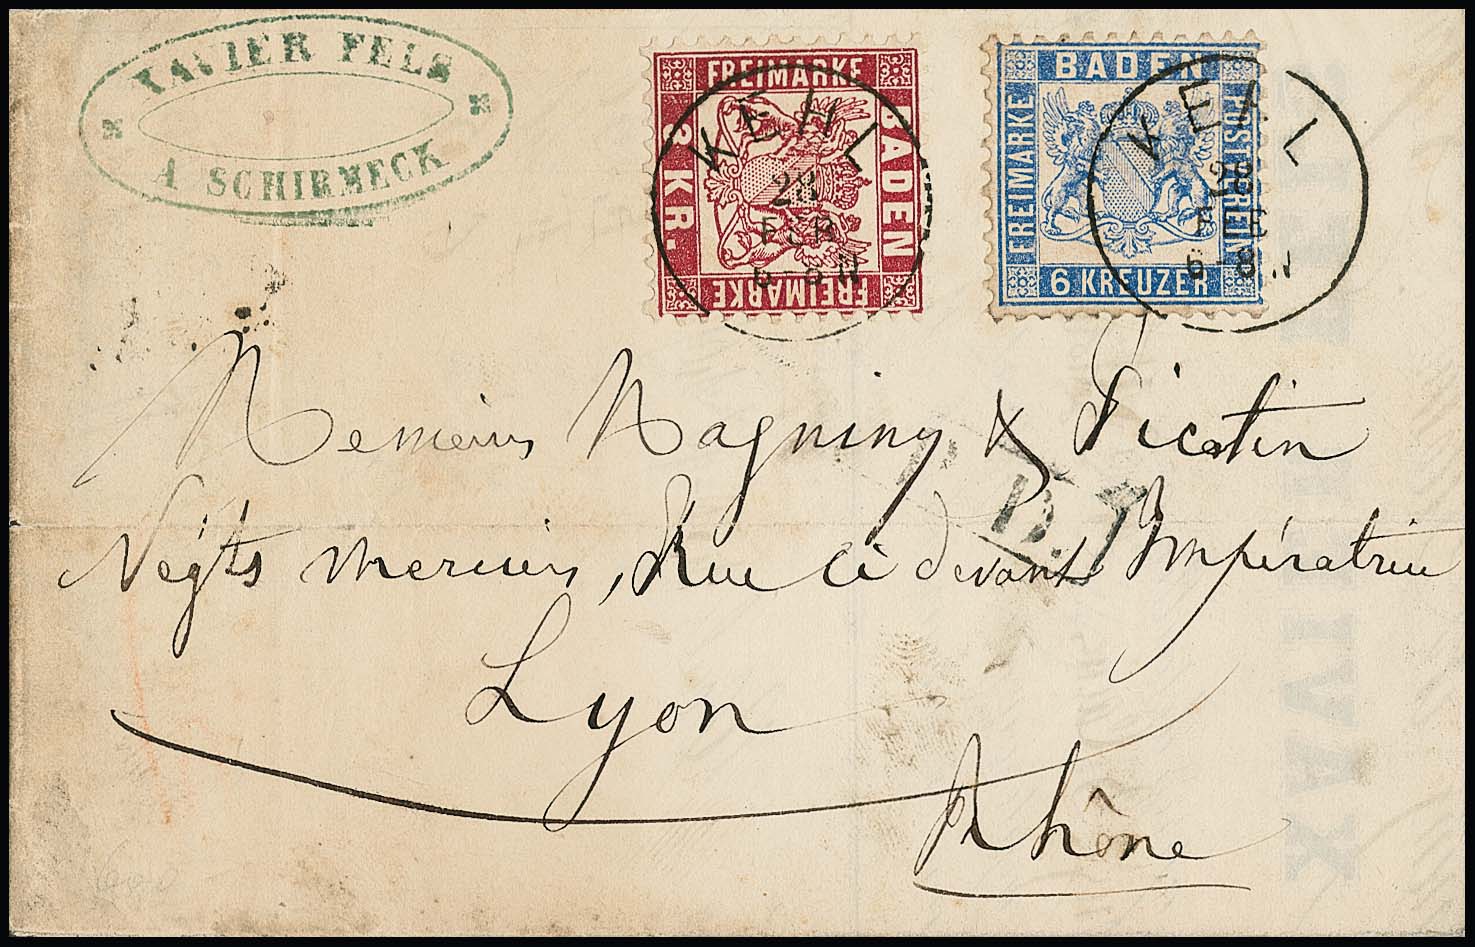 XAVIER FELS
A SCHIRMECK
FREIMARKE
BADEN
3 KR.
FREIMARKE
KEHL
28
FEB
6-8 N
BADEN
FREIMARKE
POSTVEREIN
6 KREUZER
KEHL
28
FEB
6-8 N
Messieurs Magniny & Picotin
Négts merciers, Rue ci devant Impératrice
Lyon
Rhône
P.D.